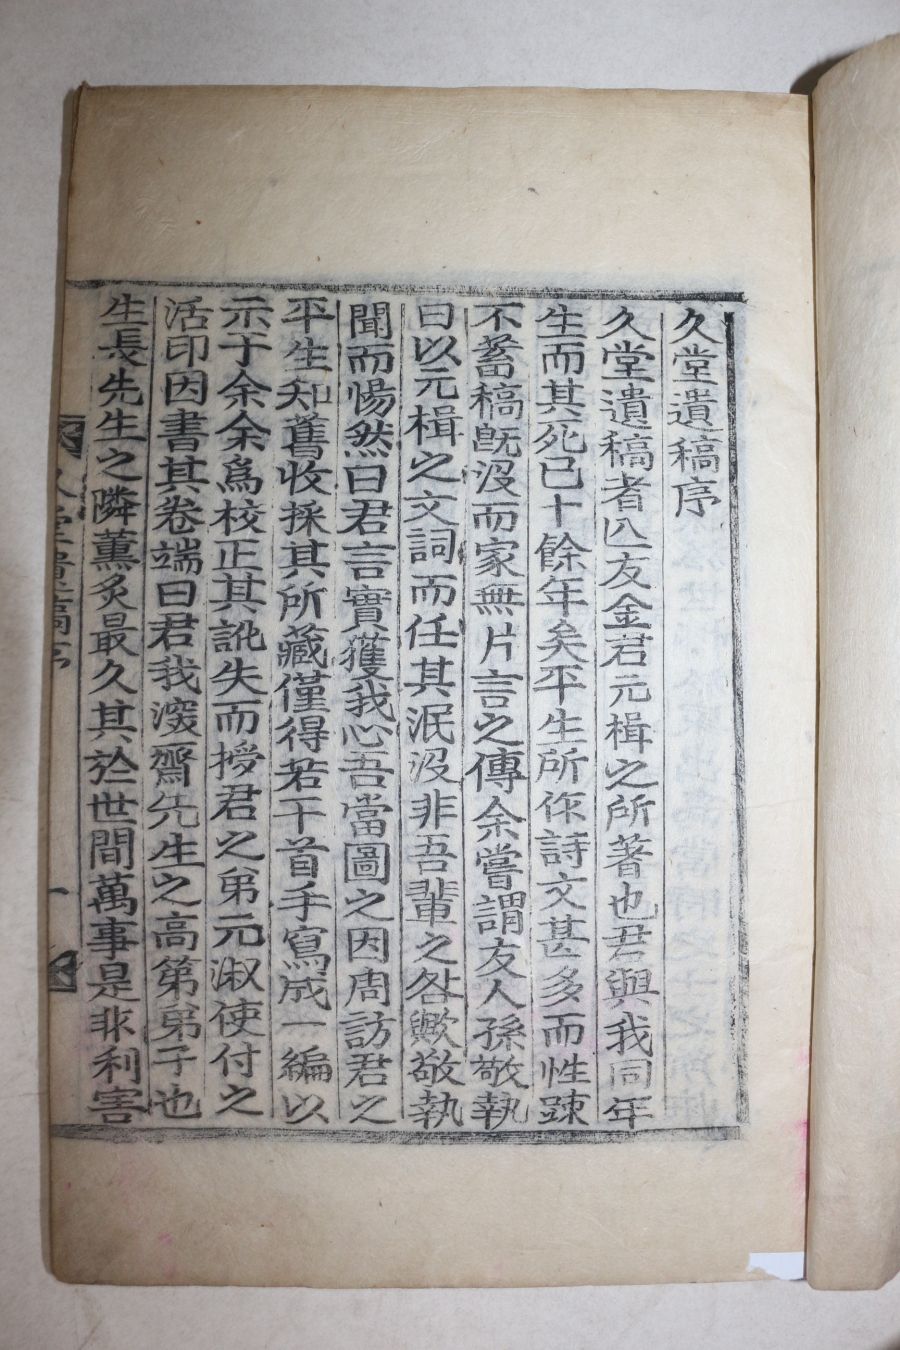 久堂遺稿序
久堂遺稿者亡友金君元楫之所著也君與我同年
生而其死已十餘年矣平生所作詩文甚多而性踈
不蓄稿旣沒而家無片言之傳余嘗謂友人孫敬執
曰以元楫之文詞而任其泯沒非吾輩之咎歟敬執
聞而惕然曰君言實獲我心吾當圖之因周訪君之
平生知舊收採其所藏僅得若干首手寫成一編以
示于余余爲校正其訛失而授君之弟元淑使付之
活印因書其卷端曰君我深齋先生之高第弟子也
生長先生之隣薰炙最久其於世間萬事是非利害
久堂遺稿序
一